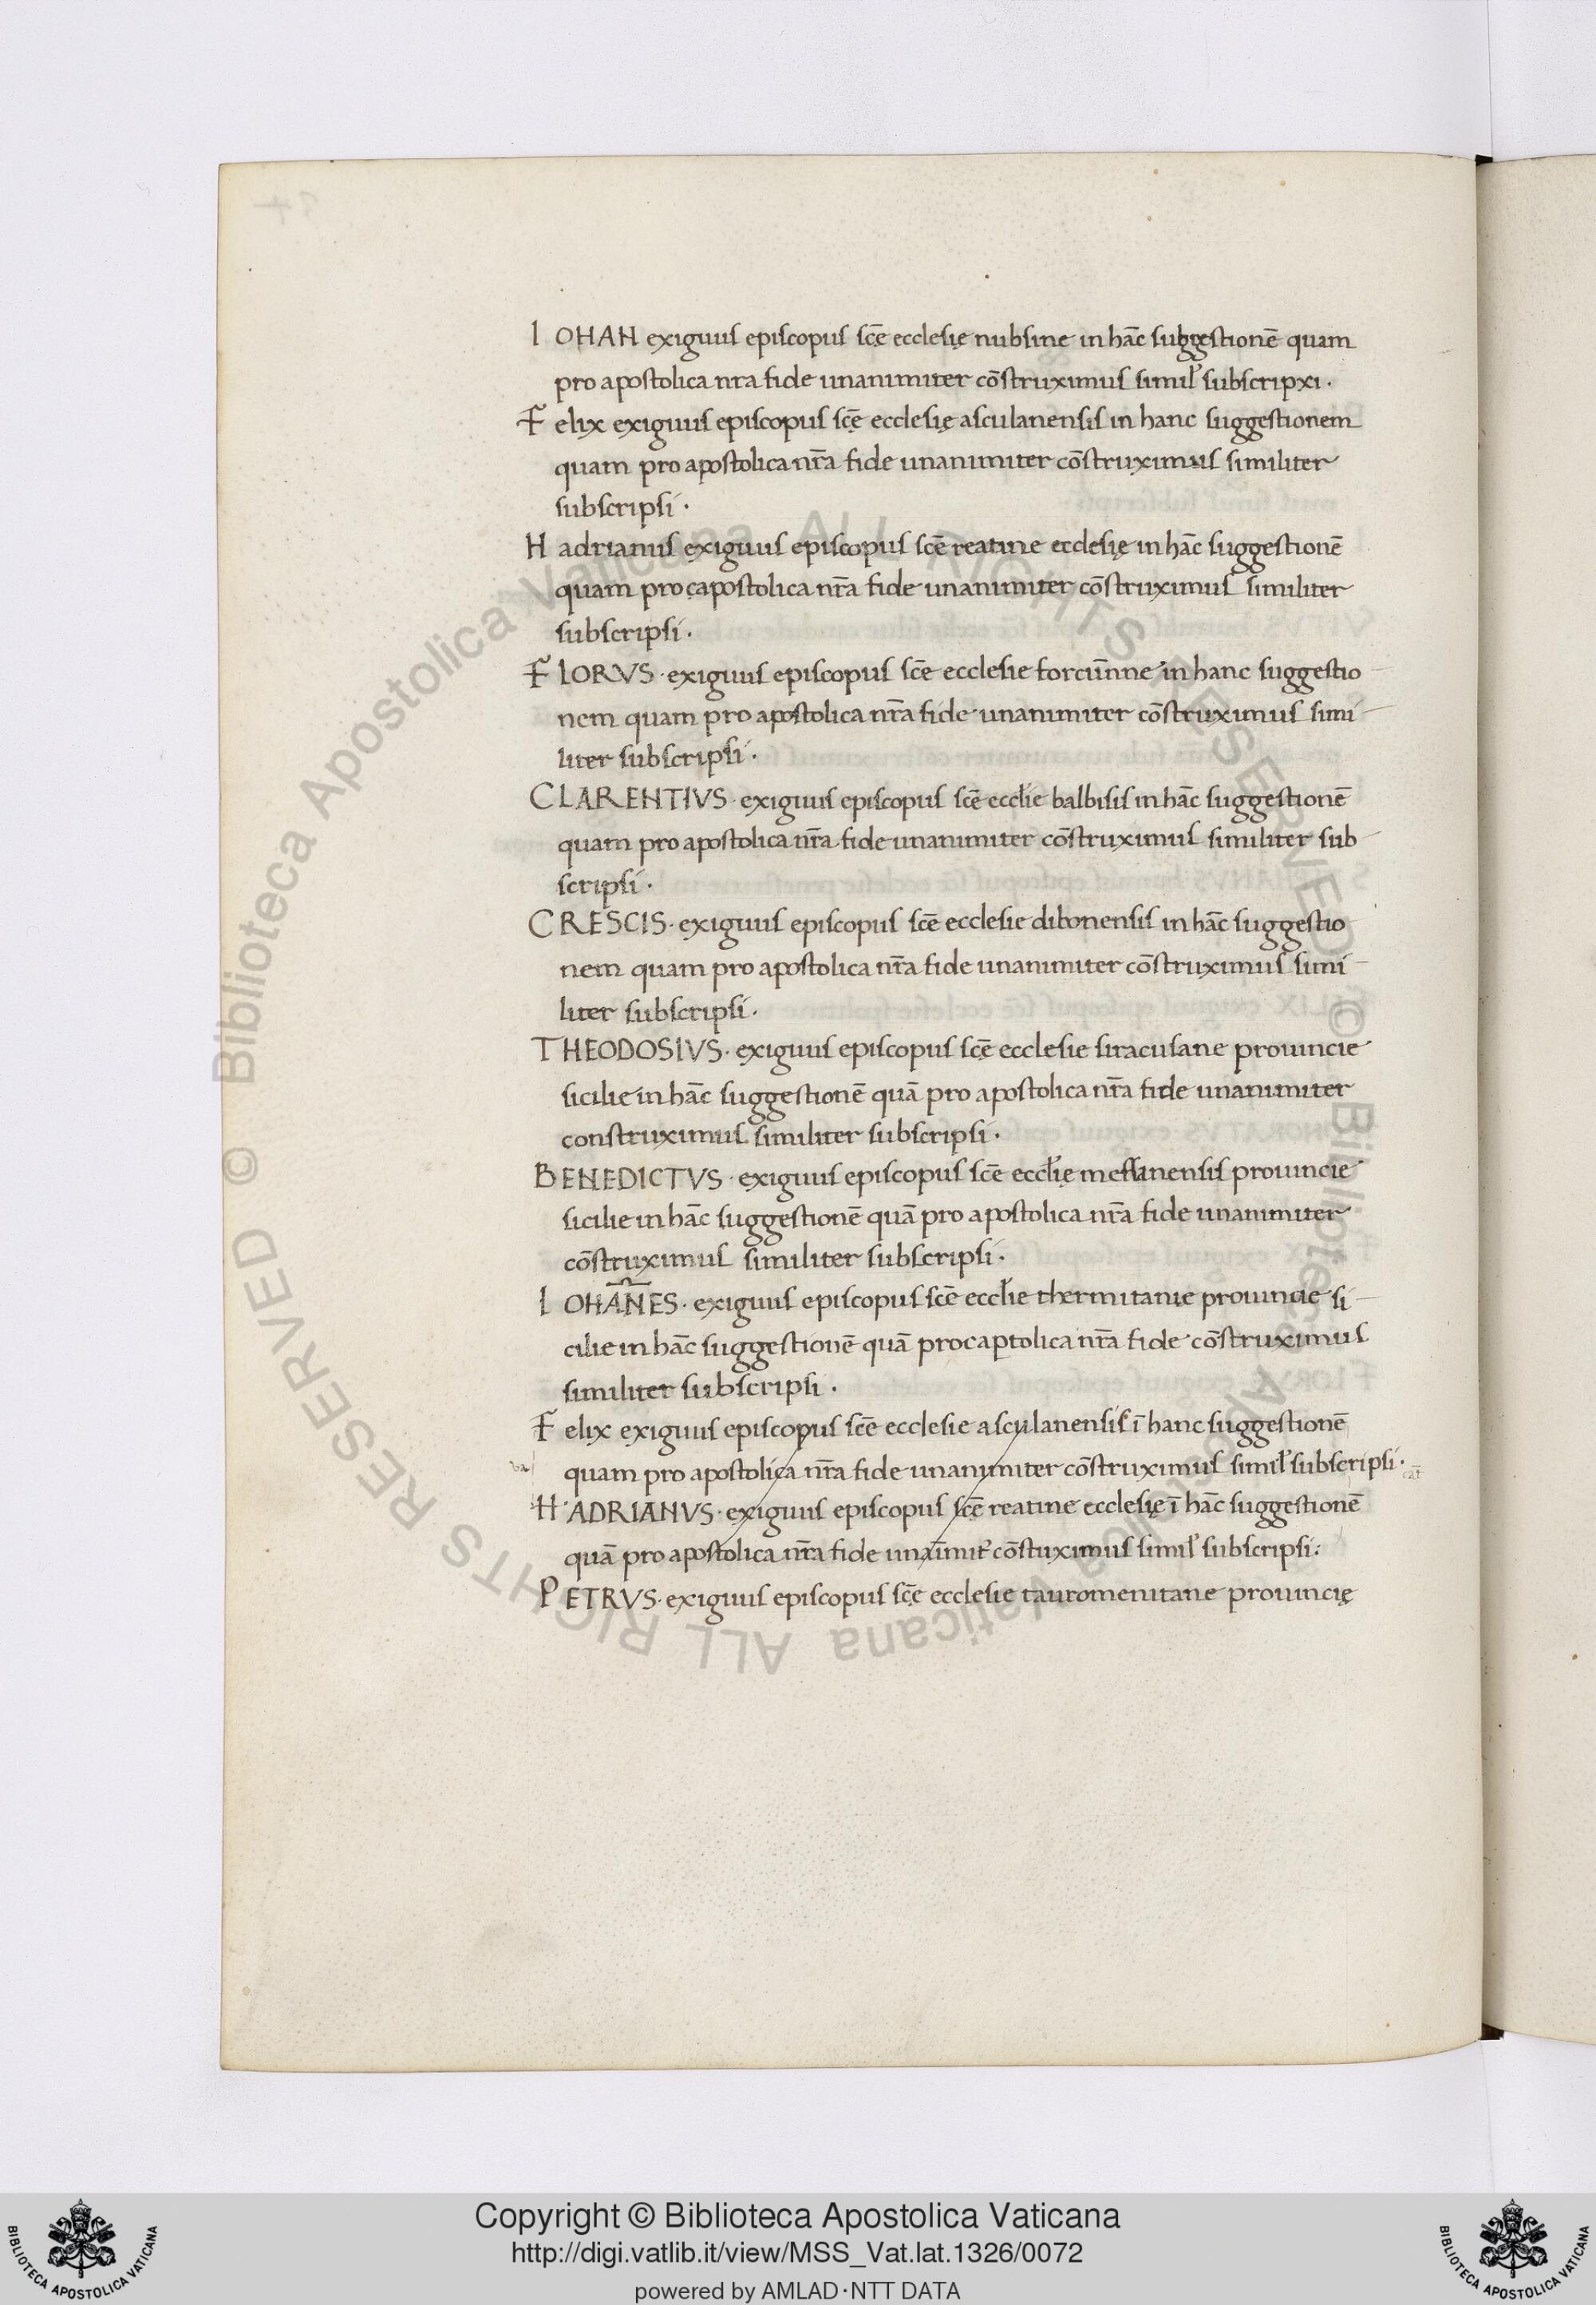 IOHAN exiguus episcopus scē ecclesię nubsine in hāc subgestionē quam
pro apostolica nra fide unanimiter cōstruximus simil' subscripxi.
Felix exiguus episcopus scē ecclesię asculanensis in hanc suggestionem
quam pro apostolica nr̄a fide unanimiter cōstruximus similiter
subscripsi.
Hadrianus exiguus episcopus scē reatine ecclesię in hāc suggestionē
quam procapostolica nr̄a fide unanimiter cōstruximus similiter
subscripsi.
FLORVS· exiguus episcopus scē ecclesie forcūnne in hanc suggestio
nem quam pro apostolica nr̄a fide unanimiter cōstruximus simi
liter subscripsi.
CLARENTIVS· exiguus episcopus scē eccl̄ie balbisis in hāc suggestionē
quam pro apostolica nr̄a fide unanimiter cōstruximus similiter sub
scripsi.
CRESCIS· exiguus episcopus scē ecclesie dibonensis in hāc suggestio
nem quam pro apostolica nr̄a fide unanimiter cōstruximus simi
liter subscripsi.
THEODOSIVS· exiguus episcopus scē ecclesie siracusane prouincie
sicilie in hāc suggestionē quā pro apostolica nr̄a fide unanimiter
construximus similiter subscripsi.
BENEDICTVS· exiguus episcopus scē eccl̄ię messanensis prouincie
sicilie in hāc suggestionē quā pro apostolica nr̄a fide unanimiter
cōstruximus similiter subscripsi.
IOHĀNES· exiguus episcopus scē eccl̄ie thermitanie prouincie si
cilie in hāc suggestionē quā procaptolica nr̄a fide cōstruximus
similiter subscripsi.
Felix exiguus episcopus scē ecclesie asculanensis ī hanc suggestionē
va quam pro apostolica nr̄a fide unanimiter cōstruximus simil' subscripsi. cat̄
HADRIANVS· exiguus episcopus scē reatine ecclesię ī hāc suggestionē
quā pro apostolica nr̄a fide unaīmit' cōstuximus simil' subscripsi:
PETRVS· exiguus episcopus scē ecclesie tauromenitane prouincię
© Biblioteca Apostolica Vaticana ALL RIGHTS RESERVED © Biblioteca Apostolica Vaticana ALL RIGHTS RESERVED
BIBLIOTECA APOSTOLICA VATICANA
Copyright © Biblioteca Apostolica Vaticana
http://digi.vatlib.it/view/MSS_Vat.lat.1326/0072
powered by AMLAD·NTT DATA
BIBLIOTECA APOSTOLICA VATICANA